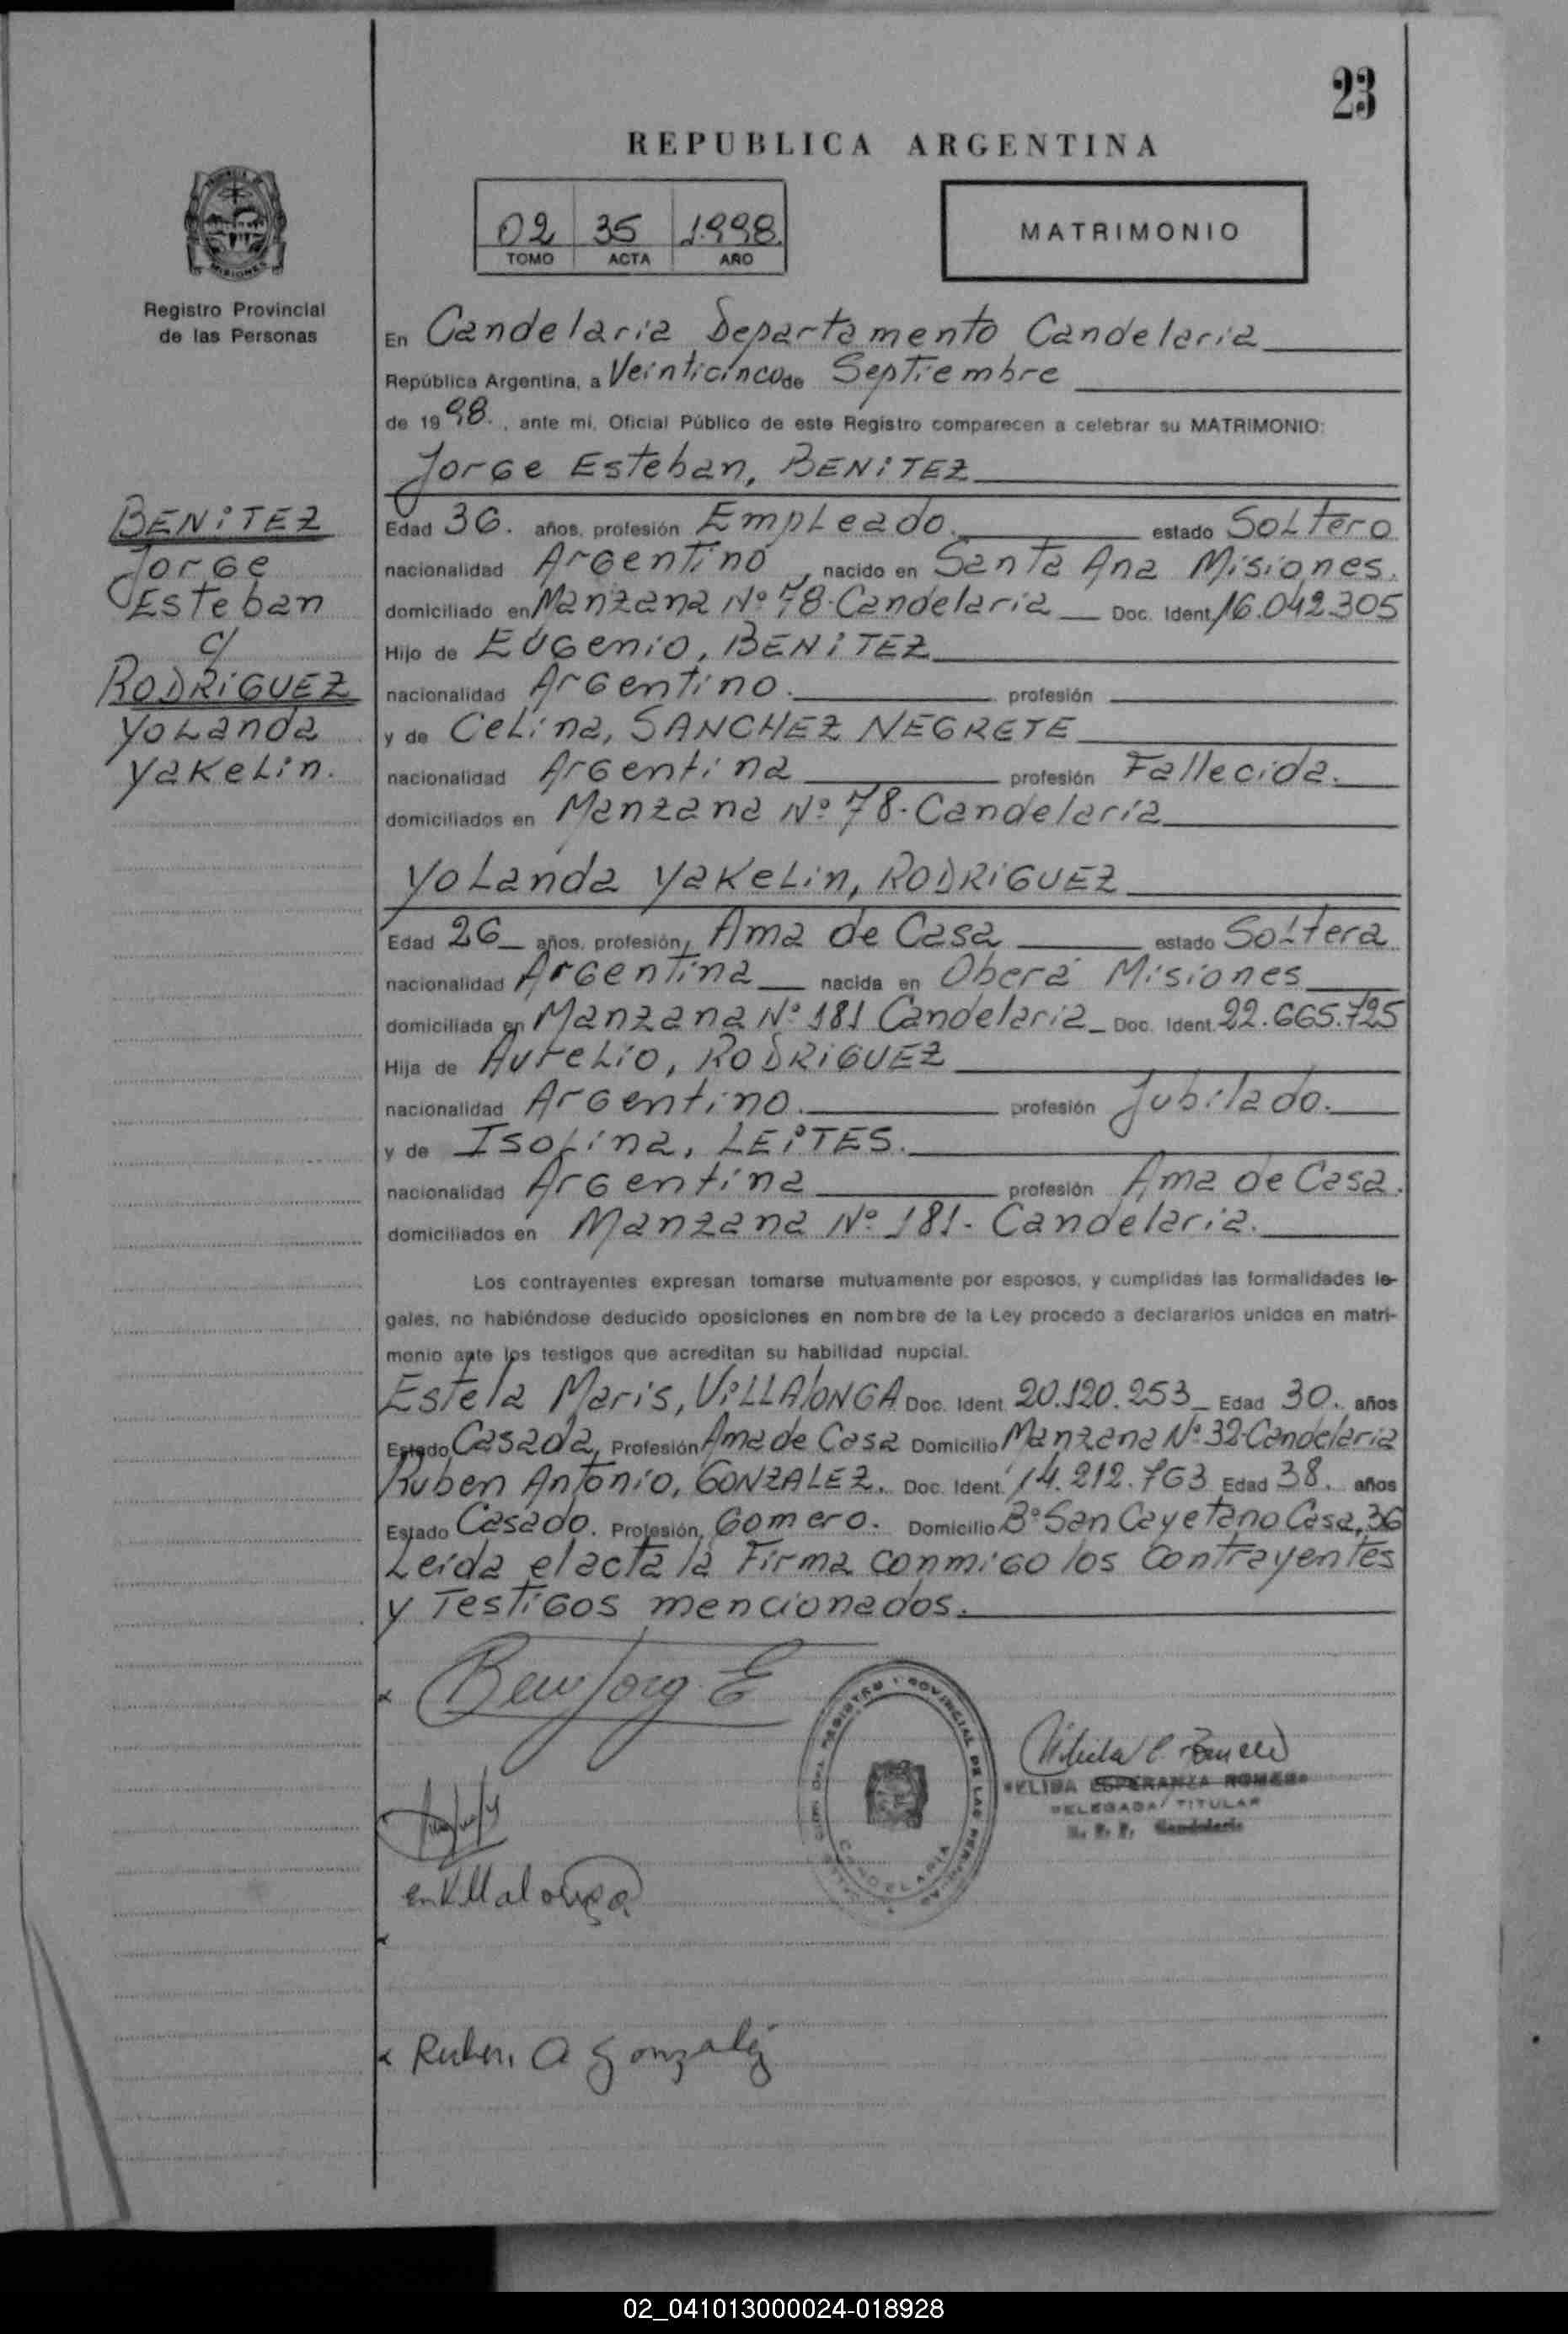 23
REPUBLICA ARGENTINA
02 35 1.998.
TOMO ACTA AÑO
MATRIMONIO
Registro Provincial
de las Personas
En Candelaria Departamento Candelaria
República Argentina, a Veinticinco de Septiembre
de 19 98. , ante mí, Oficial Público de este Registro comparecen a celebrar su MATRIMONIO:
Jorge Esteban, BENITEZ
BENITEZ
Jorge
Esteban
c/
RODRIGUEZ
Yolanda
Yakelin.
Edad 36. años, profesión Empleado. estado Soltero
nacionalidad Argentino, nacido en Santa Ana Misiones.
domiciliado en Manzana Nº 78-Candelaria Doc. Ident. 16.042.305
Hijo de Eugenio, BENITEZ
nacionalidad Argentino. profesión
y de Celina, SANCHEZ NEGRETE
nacionalidad Argentina profesión Fallecida.
domiciliados en Manzana Nº 78-Candelaria
Yolanda Yakelin, RODRIGUEZ
Edad 26 años, profesión, Ama de Casa estado Soltera
nacionalidad Argentina nacida en Oberá Misiones
domiciliada en Manzana Nº 181 Candelaria Doc. Ident. 22.665.725
Hija de Aurelio, RODRIGUEZ
nacionalidad Argentino. profesión Jubilado.
y de Isolina, LEITES.
nacionalidad Argentina profesión Ama de Casa.
domiciliados en Manzana Nº 181- Candelaria.
Los contrayentes expresan tomarse mutuamente por esposos, y cumplidas las formalidades le-
gales, no habiéndose deducido oposiciones en nombre de la Ley procedo a declararlos unidos en matri-
monio ante los testigos que acreditan su habilidad nupcial.
Estela Maris, VILLALONGA Doc. Ident. 20.120.253 Edad 30. años
Estado Casada, Profesión Ama de Casa Domicilio Manzana Nº 32-Candelaria
Ruben Antonio, GONZALEZ. Doc. Ident. 14.212.763 Edad 38. años
Estado Casado. Profesión, Gomero. Domicilio Bº San Cayetano Casa, 36
Leida el acta la Firma conmigo los Contrayentes
y Testigos mencionados.
REGISTRO PROVINCIAL DE LAS PERSONAS
CANDELARIA
ESPERANZA ROMERO
DELEGADA TITULAR
R. P. P. Candelaria
Villalonga
Ruben A Gonzalez
02_041013000024-018928